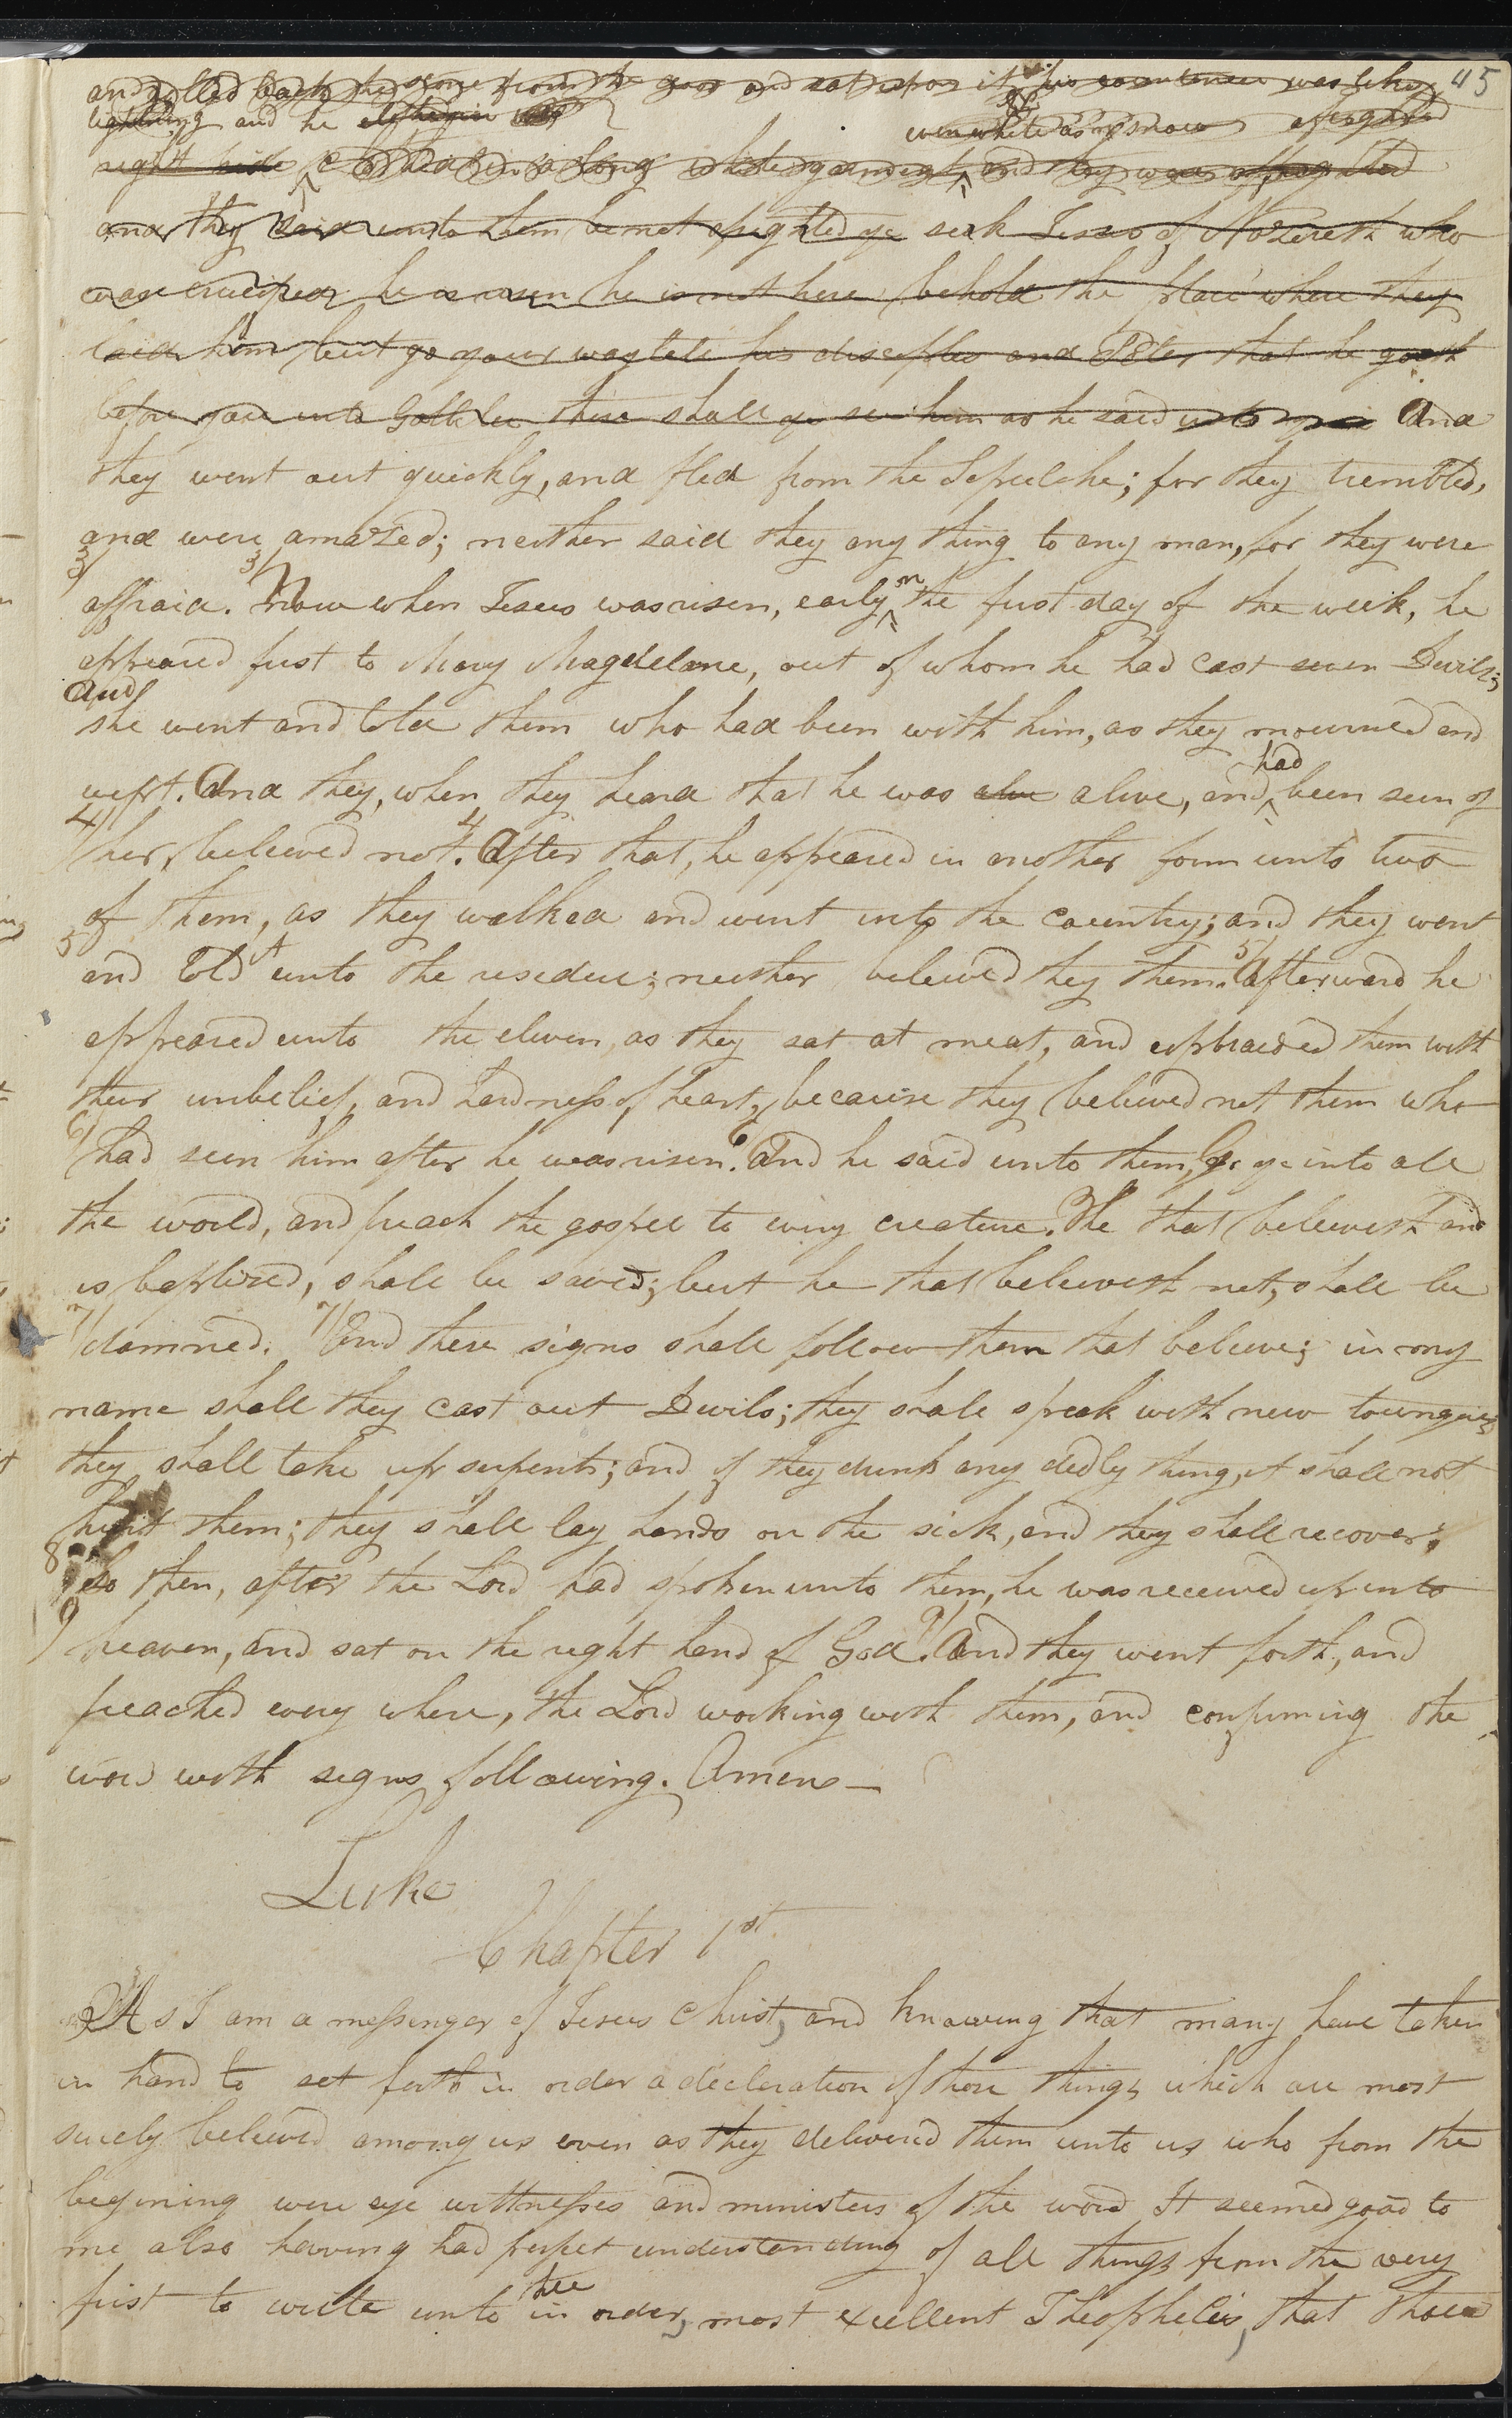 45
and rolled back the stone from the door and sat upon it his countenance was like
lightning and he
even white as snow afrighted
right side clothed in a long white garment, and they were affrighted
and they said unto them be not afrighted ye seek Jesus of Nazereth who
was crucified he is risen he is not here behold the place where they
laid him but go your way tell his disciples and Peter that he goeth
before you into Gallilee there shall ye see him as he said unto you And
they went out quickly, and fled from the Sepulchre; for they trembled,
and were amazed; neither said they any thing to any man, for they were
3/ affraid. 3/ Now when Jesus was risen, early on the first day of the week, he
appeared first to Mary Magdelene, out of whom he had cast seven Devils;
and she went and told them who had been with him, as they mourned and
wept. And they, when they heard that he was alive alive, and had been seen of
4/ her, believed not. 4 After that, he appeared in another form unto two
of them, as they walked and went into the country; and they went
5 and told it unto the residue; neither believed they them. 5/ Afterward he
appeared unto the eleven, as they sat at meat, and upbraided them with
their unbelief, and hardness of heart, because they believed not them who
6/ had seen him after he was risen. 6 And he said unto them, Go ye into all
the world, and preach the gospel to every creature. He that believeth and
is baptised, shall be saved; but he that believeth not, shall be
7/ damned. 7/ And these signs shall follow them that believe; in my
name shall they cast out Devils; they shall speak with new toungues
they shall take up serpents; and if they drink any dedly thing, it shall not
hurt them; they shall lay hands on the sick, and they shall recover;
8 So then, after the Lord had spoken unto them, he was received up into
9 heaven, and sat on the right hand of God. 9/ And they went forth, and
preached every where, the Lord working with them, and confirming the
word with signs following. Amen—
Luke
Chapter 1st
As I am a messenger of Jesus Christ, and knowing that many have taken
in hand to set forth in order a decleration of those things which are most
surely believed among us even as they delivered them unto us who from the
begining were eye wittnesses and ministers of the word It seemed good to
me also having had perfect understanding of all things from the very
first to write unto thee in order, most exellent Theophelis, that thou